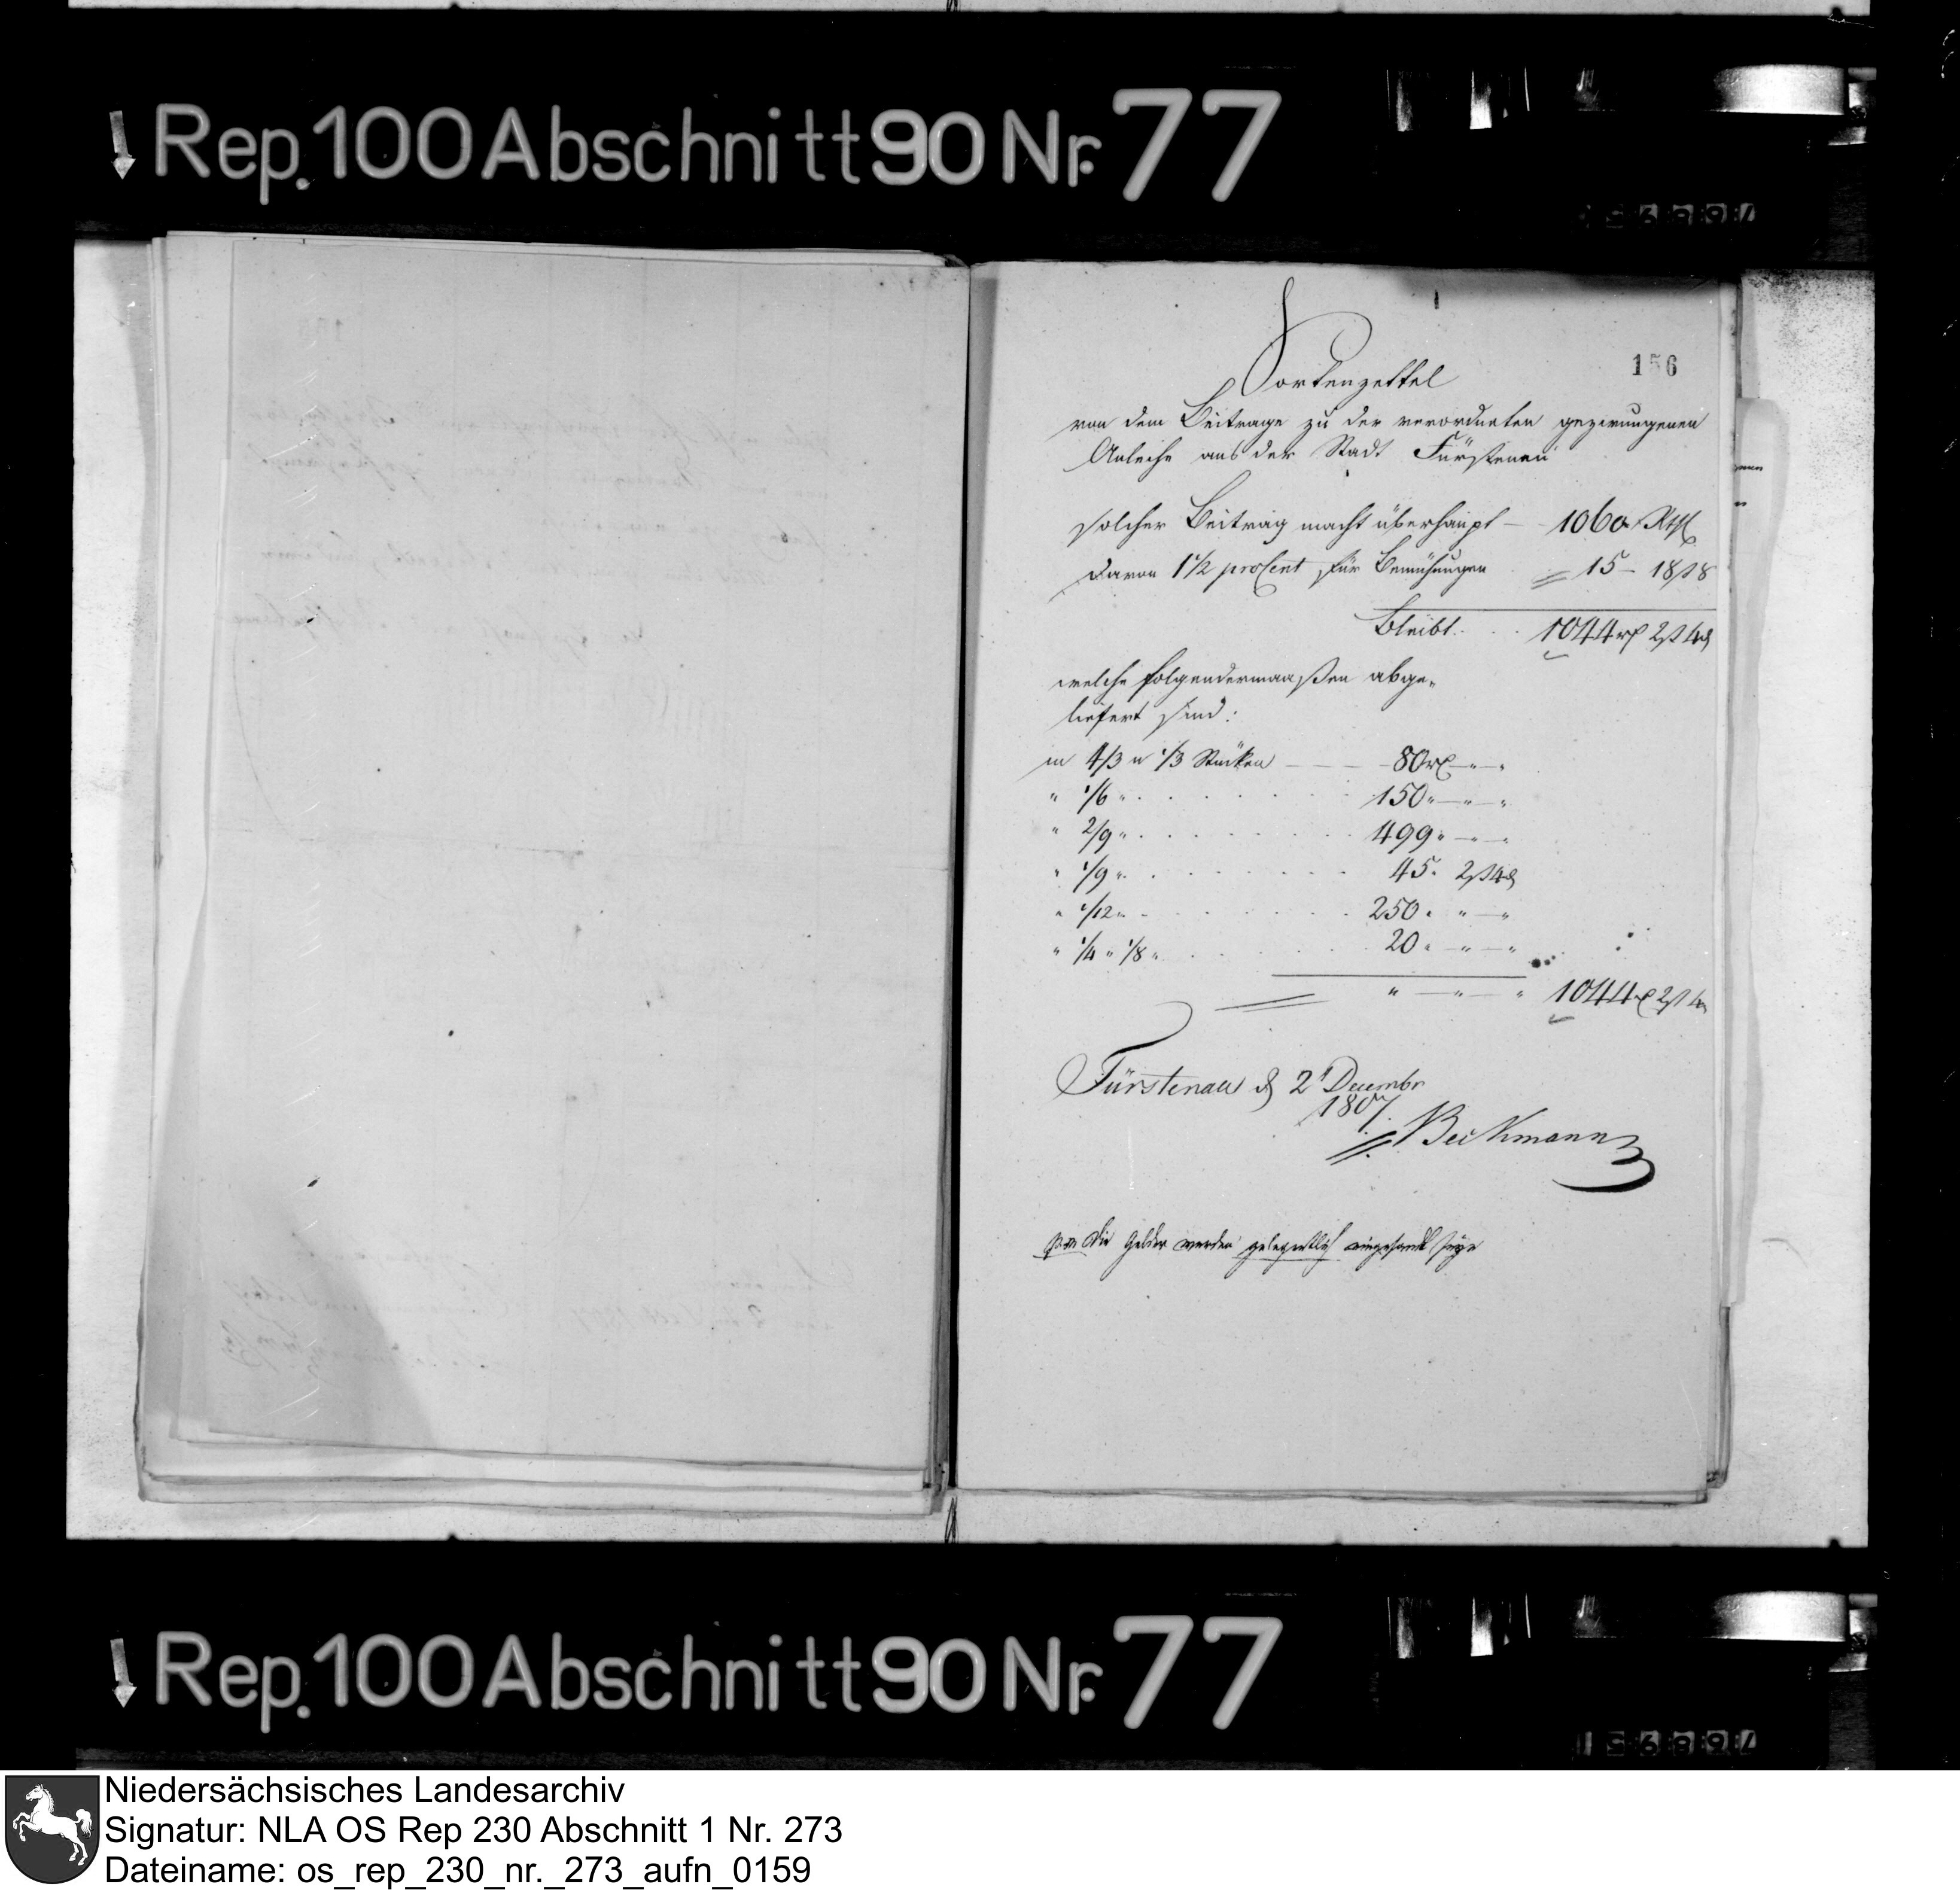 Rep. 100 Abschnitt 90 Nr. 77
156
Sortenzettel
von dem Beitrage zu der verordneten gezwungenen
Anleihe aus der Stadt Fürstenau
solcher Beitrag macht überhaupt — 1060 Rthl
davon 1 1/2 proCent für Bemühungen = 15 - 18 ß 8
Bleibt . . . 1044 rl 2 ß 4 d
welche folgendermaaßen abge-
liefert sind:
in 4/3 u 1/3 Stücken — 80 rl — " "
" 1/6 " . . . . 150 " — " — "
" 2/9 " . . . . 499 " — " — "
" 1/9 " . . . . 45 " 2 ß 4 d
" 1/12 " . . . . 250 " " — "
" 1/4 " 1/8 " . . . . 20 " — " — "
" — " — " 1044 rl 2 ß 4
Fürstenau d 2t Decembr
1807.
Beckmann
die Gelder werden gelegentlich eingesandt
Rep. 100 Abschnitt 90 Nr. 77
Niedersächsisches Landesarchiv
Signatur: NLA OS Rep 230 Abschnitt 1 Nr. 273
Dateiname: os_rep_230_nr._273_aufn_0159